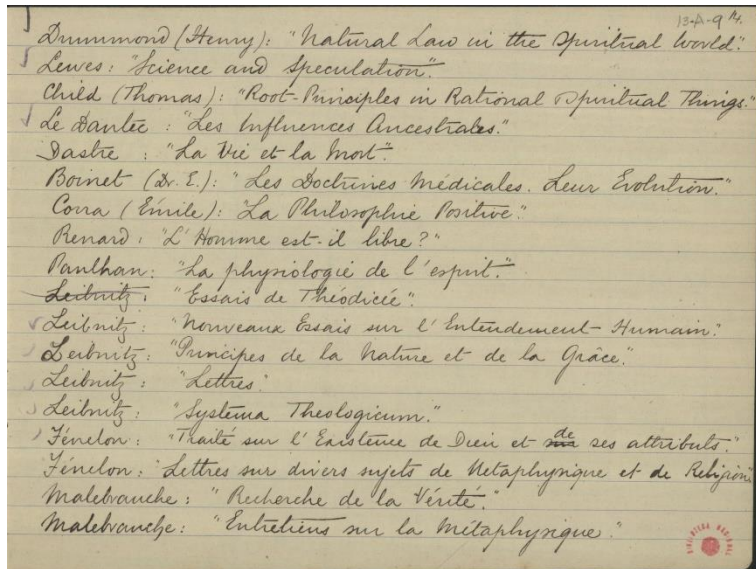 13-A-9 14.
Drummond (Henry): "Natural Law in the Spiritual World".
Lewes: "Science and Speculation".
Child (Thomas): "Root-Principles in Rational Spiritual Things."
Le Dantec: "Les Influences Ancestrales."
Dastre: "La Vie et la Mort".
Boinet (Dr. E.): "Les Doctrines Médicales. Leur Evolution."
Corra (Émile): "La Philosophie Positive".
Renard: "L'Homme est-il libre?"
Paulhan: "La physiologie de l'esprit."
Leibnitz: "Essais de Théodicée".
Leibnitz: "Nouveaux Essais sur l'Entendement Humain".
Leibnitz: "Principes de la Nature et de la Grâce".
Leibnitz: "Lettres"
Leibnitz: "Systema Theologicum."
Fénelon: "Traité sur l'Existence de Dieu et de ses attributs."
Fénelon: "Lettres sur divers sujets de Métaphysique et de Religion"
Malebranche: "Recherche de la Vérité."
Malebranche: "Entretiens sur la Métaphysique."
BIBLIOTECA NACIONAL